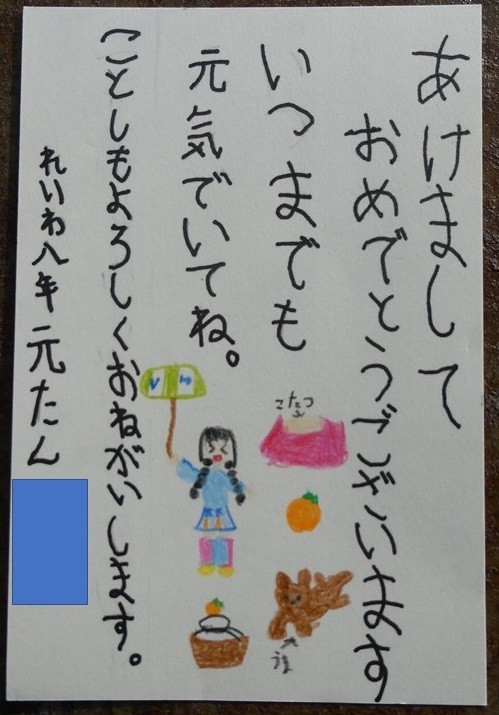 あけまして
おめでとうございます
いつまでも
元気でいてね。
ことしもよろしくおねがいします。
れいわ八年元たん
こたつ
うま